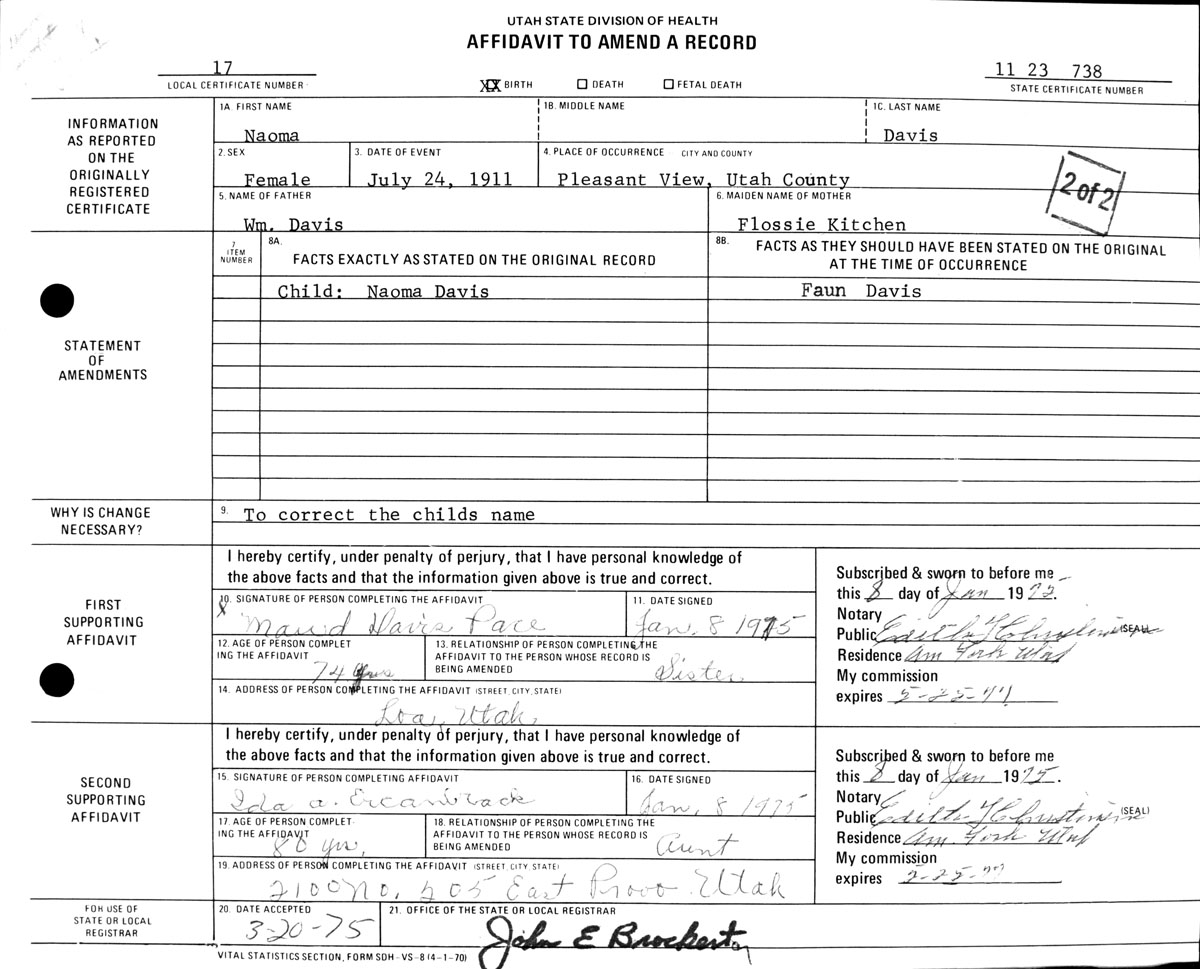 UTAH STATE DIVISION OF HEALTH
AFFIDAVIT TO AMEND A RECORD
17
LOCAL CERTIFICATE NUMBER
XX BIRTH
DEATH
FETAL DEATH
11 23 738
STATE CERTIFICATE NUMBER
INFORMATION
AS REPORTED
ON THE
ORIGINALLY
REGISTERED
CERTIFICATE
1A. FIRST NAME
Naoma
1B. MIDDLE NAME
1C. LAST NAME
Davis
2. SEX
Female
3. DATE OF EVENT
July 24, 1911
4. PLACE OF OCCURRENCE CITY AND COUNTY
Pleasant View, Utah County
2 of 2
5. NAME OF FATHER
Wm. Davis
6. MAIDEN NAME OF MOTHER
Flossie Kitchen
STATEMENT
OF
AMENDMENTS
7
ITEM
NUMBER
8A.
FACTS EXACTLY AS STATED ON THE ORIGINAL RECORD
8B.
FACTS AS THEY SHOULD HAVE BEEN STATED ON THE ORIGINAL
AT THE TIME OF OCCURRENCE
Child: Naoma Davis
Faun Davis
WHY IS CHANGE
NECESSARY?
9. To correct the childs name
FIRST
SUPPORTING
AFFIDAVIT
I hereby certify, under penalty of perjury, that I have personal knowledge of
the above facts and that the information given above is true and correct.
10. SIGNATURE OF PERSON COMPLETING THE AFFIDAVIT
X Maud Davis Pace
11. DATE SIGNED
Jan. 8 1975
12. AGE OF PERSON COMPLET
ING THE AFFIDAVIT
74 yrs
13. RELATIONSHIP OF PERSON COMPLETING THE
AFFIDAVIT TO THE PERSON WHOSE RECORD IS
BEING AMENDED
Sister
14. ADDRESS OF PERSON COMPLETING THE AFFIDAVIT (STREET, CITY, STATE)
Loa, Utah.
Subscribed & sworn to before me
this 8 day of Jan 1975.
Notary
Public Edith (SEAL)
Residence Am Fork Utah
My commission
expires 5-25-77
SECOND
SUPPORTING
AFFIDAVIT
I hereby certify, under penalty of perjury, that I have personal knowledge of
the above facts and that the information given above is true and correct.
15. SIGNATURE OF PERSON COMPLETING AFFIDAVIT
Ida A. Ercanbrack
16. DATE SIGNED
Jan. 8 1975
17. AGE OF PERSON COMPLET-
ING THE AFFIDAVIT
80 yrs.
18. RELATIONSHIP OF PERSON COMPLETING THE
AFFIDAVIT TO THE PERSON WHOSE RECORD IS
BEING AMENDED
Aunt
19. ADDRESS OF PERSON COMPLETING THE AFFIDAVIT (STREET, CITY, STATE)
2100 No. 205 East Provo Utah
Subscribed & sworn to before me
this 8 day of Jan 1975.
Notary
Public Edith (SEAL)
Residence Am. Fork Utah
My commission
expires 5-25-77
FOR USE OF
STATE OR LOCAL
REGISTRAR
20. DATE ACCEPTED
3-20-75
21. OFFICE OF THE STATE OR LOCAL REGISTRAR
John E Brockert
VITAL STATISTICS SECTION, FORM SDH-VS-8 (4-1-70)